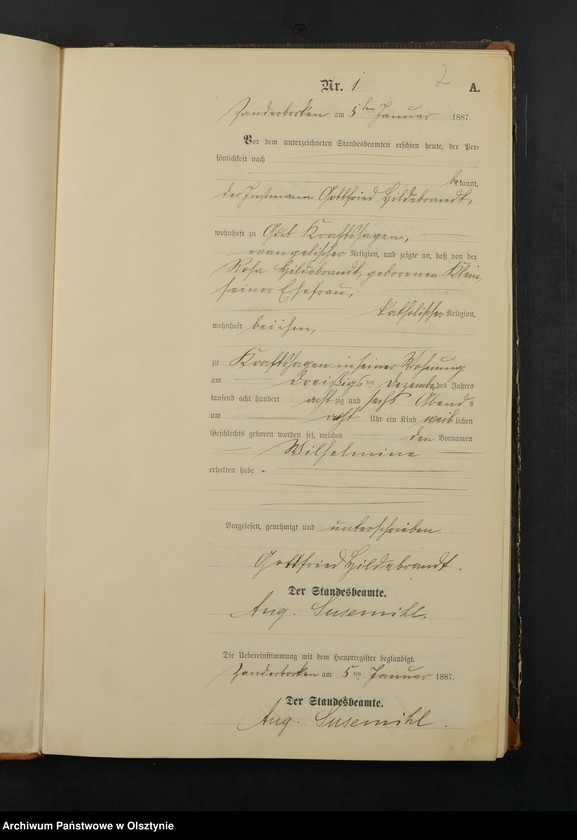 2
Nr. 1 A.
Zanderborken am 5ten Januar 1887.
Vor dem unterzeichneten Standesbeamten erschien heute, der Per-
sönlichkeit nach
bekannt,
der Instmann Gottfried Hildebrandt,
wohnhaft zu Gut Kraftshagen,
evangelischer Religion, und zeigte an, daß von der
Rosa Hildebrandt, geborenen Klein,
seiner Ehefrau,
katholischer Religion,
wohnhaft bei ihm,
zu Kraftshagen in seiner Wohnung
am dreißigsten Dezember des Jahres
tausend acht hundert achtzig und sechs Abends
um acht Uhr ein Kind weiblichen
Geschlechts geboren worden sei, welches den Vornamen
Wilhelmine
erhalten habe.
Vorgelesen, genehmigt und unterschrieben
Gottfried Hildebrandt.
Der Standesbeamte.
Aug. Susemihl.
Die Uebereinstimmung mit dem Hauptregister beglaubigt.
Zanderborken am 5ten Januar 1887.
Der Standesbeamte.
Aug. Susemihl.
Archiwum Państwowe w Olsztynie